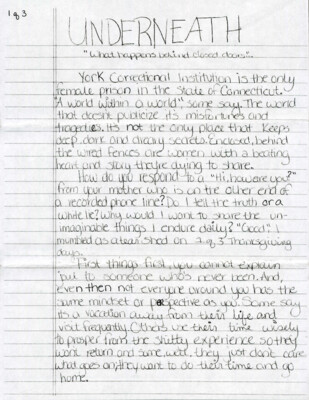 1 of 3
UNDERNEATH
"What happens behind closed doors".
York Correctional Institution is the only
female prison in the state of Connecticut.
"A world within a world" some say. The world
that doesnt publicize its misfortunes and
tragedies. It's not the only place that keeps
deep, dark and dreary secrets. Enclosed, behind
the wired fences are women with a beating
heart and story they're dying to share.
How do you respond to a "Hi, how are you?"
from your mother who is on the other end of
a recorded phone line? Do I tell the truth or a
white lie? Why would I want to share the un-
imaginable things I endure daily? "Good" I
mumbled as a tear shed on 2 of 3 Thanksgiving
days.
First things first, you cannot explain
"it" to someone who's never been. And,
even then not everyone around you has the
same mindset or perspective as you. Some say
its a vacation away from their life and
visit frequently. Others use their time wisely
to prosper from the shitty experience so they
wont return and some, well, they just don't care
what goes on, they want to do their time and go
home.